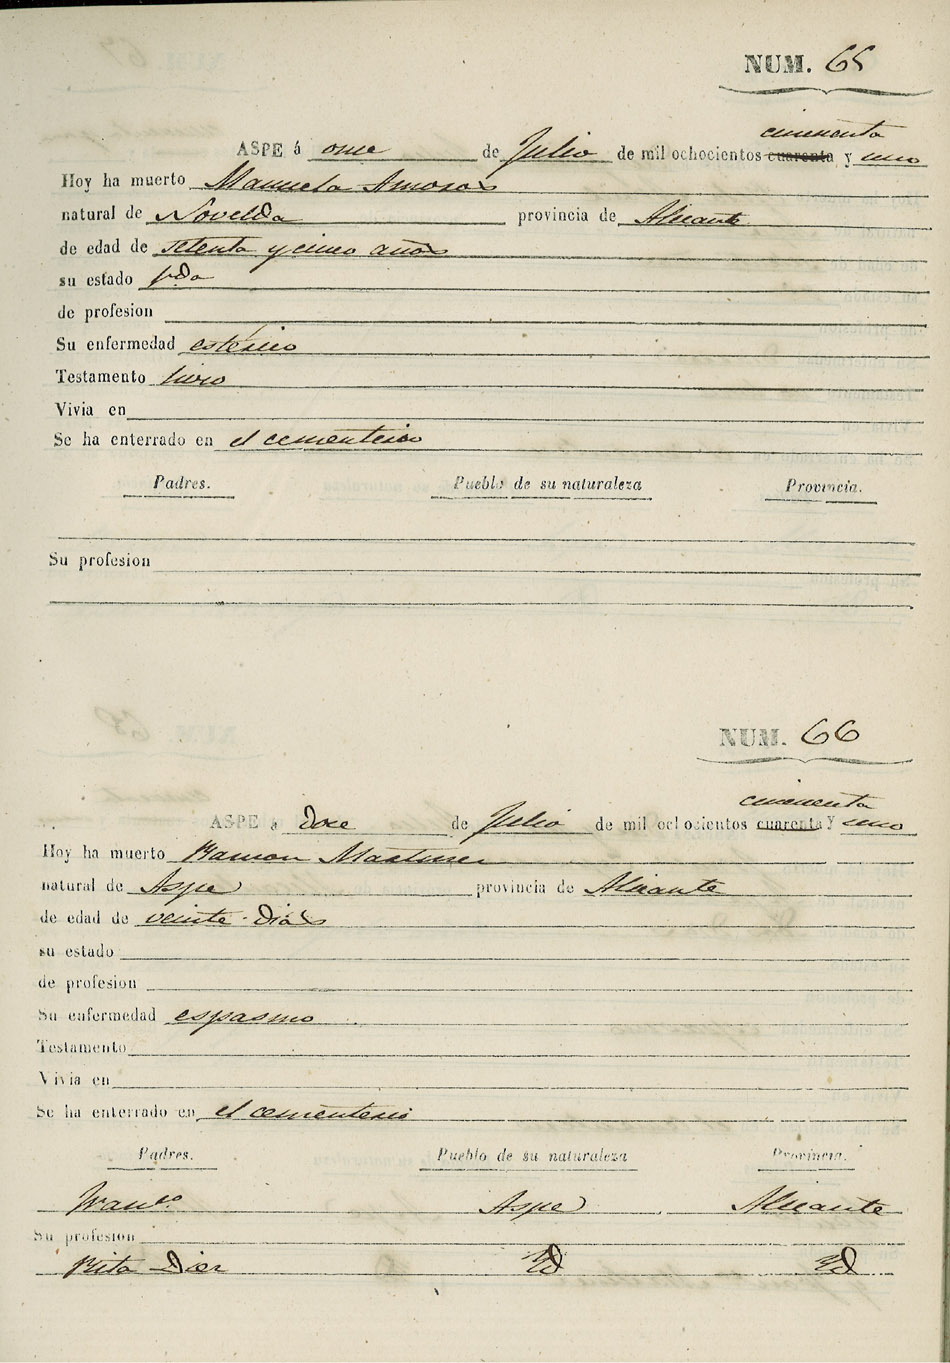 NUM. 65
cincuenta
ASPE á once de Julio de mil ochocientos cuarenta y uno
Hoy ha muerto Manuela Amoros
natural de Novelda provincia de Alicante
de edad de setenta y cinco años
su estado Vda
de profesion
Su enfermedad
Testamento hizo
Vivia en
Se ha enterrado en el cementerio
Padres. Pueblo de su naturaleza Provincia.
Su profesion
NUM. 66
cincuenta
ASPE a doce de Julio de mil ochocientos cuarenta y uno
Hoy ha muerto Ramon Martinez
natural de Aspe provincia de Alicante
de edad de veinte dias
su estado
de profesion
Su enfermedad espasmo
Testamento
Vivia en
Se ha enterrado en el cementerio
Padres. Pueblo de su naturaleza Provincia.
Franco. Aspe Alicante
Su profesion
Rita Diez Id Id